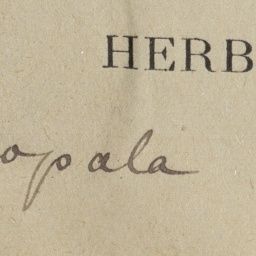 HERB
opala